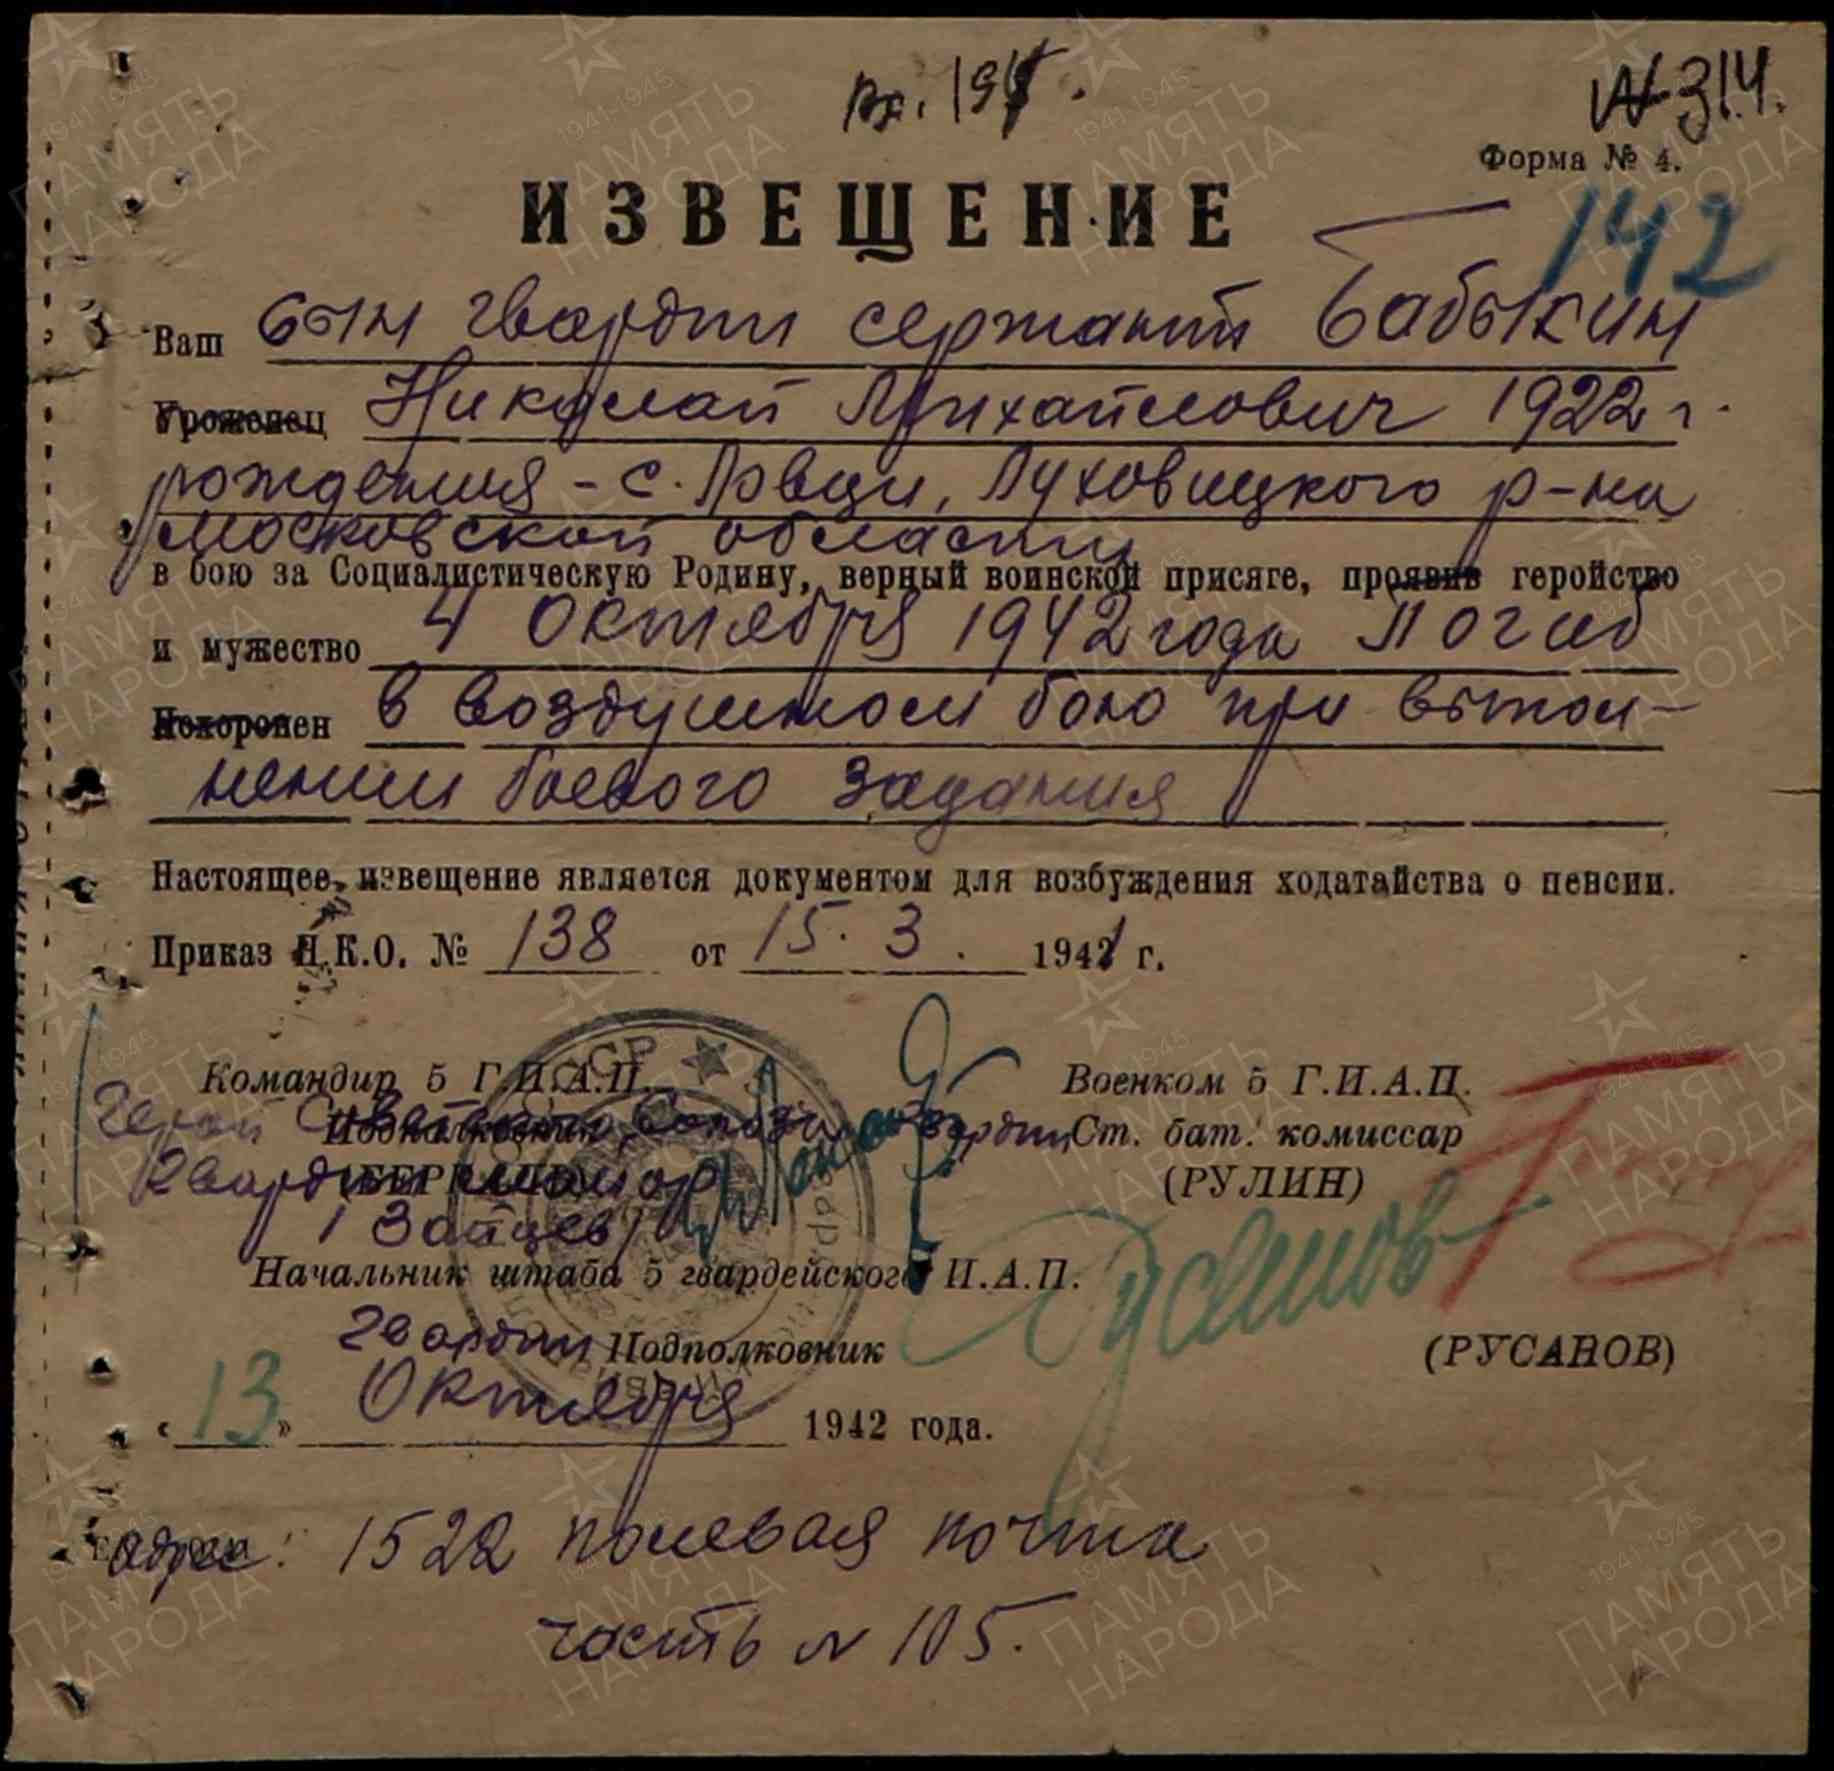 Вх. 194.
№ 314.
Форма № 4.
142
ИЗВЕЩЕНИЕ
Ваш сын гвардии сержант Бабыкин
Уроженец Николай Михайлович 1922 г.
рождения - с. Ловцы, Луховицкого р-на
Московской области
в бою за Социалистическую Родину, верный воинской присяге, проявив геройство
и мужество 4 Октября 1942 года Погиб
Похоронен в воздушном бою при выпол-
нении боевого задания
Настоящее извещение является документом для возбуждения ходатайства о пенсии.
Приказ Н.К.О. № 138 от 15. 3. 1941 г.
Командир 5 Г.И.А.П. Военком 5 Г.И.А.П.
Герой Советского Союза Подполковник гвардии Ст. бат. комиссар
Гвардии майор (РУЛИН)
/Зайцев/
Начальник штаба 5 гвардейского И.А.П.
гвардии Подполковник Русанов (РУСАНОВ)
«13» Октября 1942 года.
Адрес: 1522 полевая почта
часть № 105.
СССР
1941-1945
ПАМЯТЬ
НАРОДА